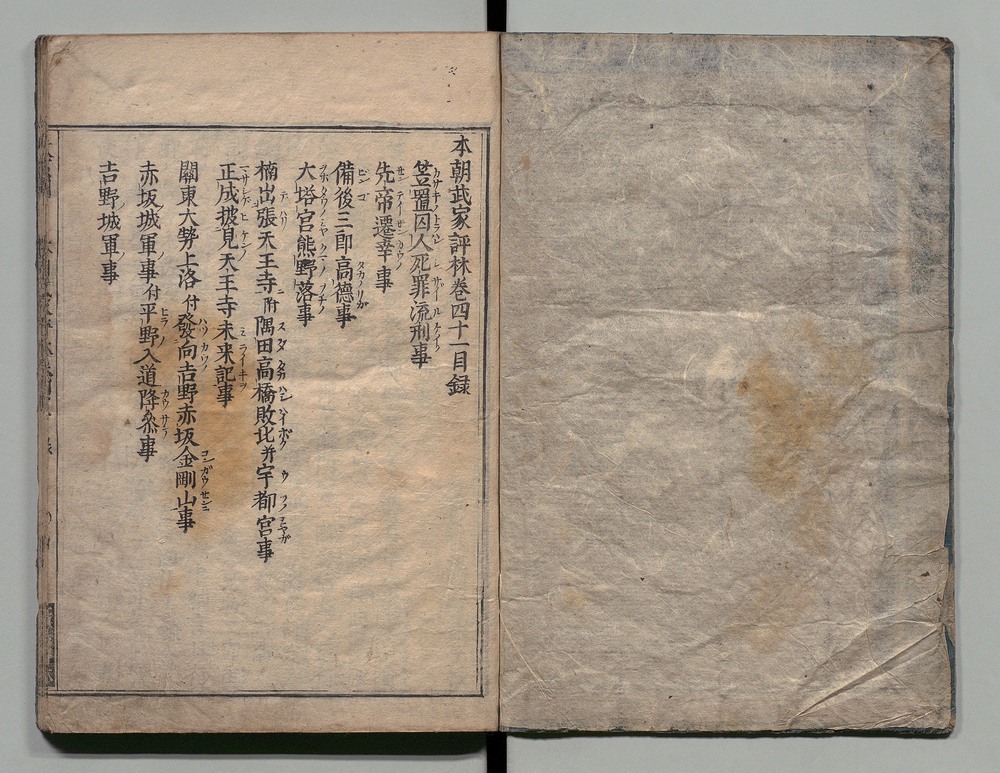 本朝武家評林巻四十一目録
笠置囚人死罪流刑事
先帝遷幸事
備後三郎高徳事
大塔宮熊野落事
楠出張天王寺附隅田高橋敗北并宇都宮事
正成披見天王寺未来記事
關東大勢上洛付發向吉野赤坂金剛山事
赤坂城軍事付平野入道降参事
吉野城軍事